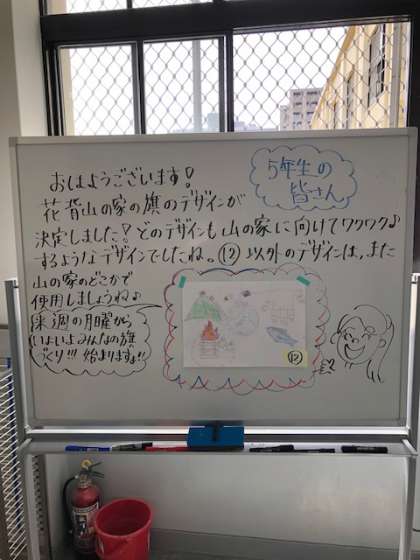 5年生の
皆さん
おはようございます!
花背山の家の旗のデザインが
決定しました!どのデザインも山の家に向けてワクワク♪
するようなデザインでしたね。⑫以外のデザインは、また
山の家のどこかで
使用しましょうね♪
来週の月曜から
いよいよみんなの旗
づくり!!!始まりますよ!!
⑫